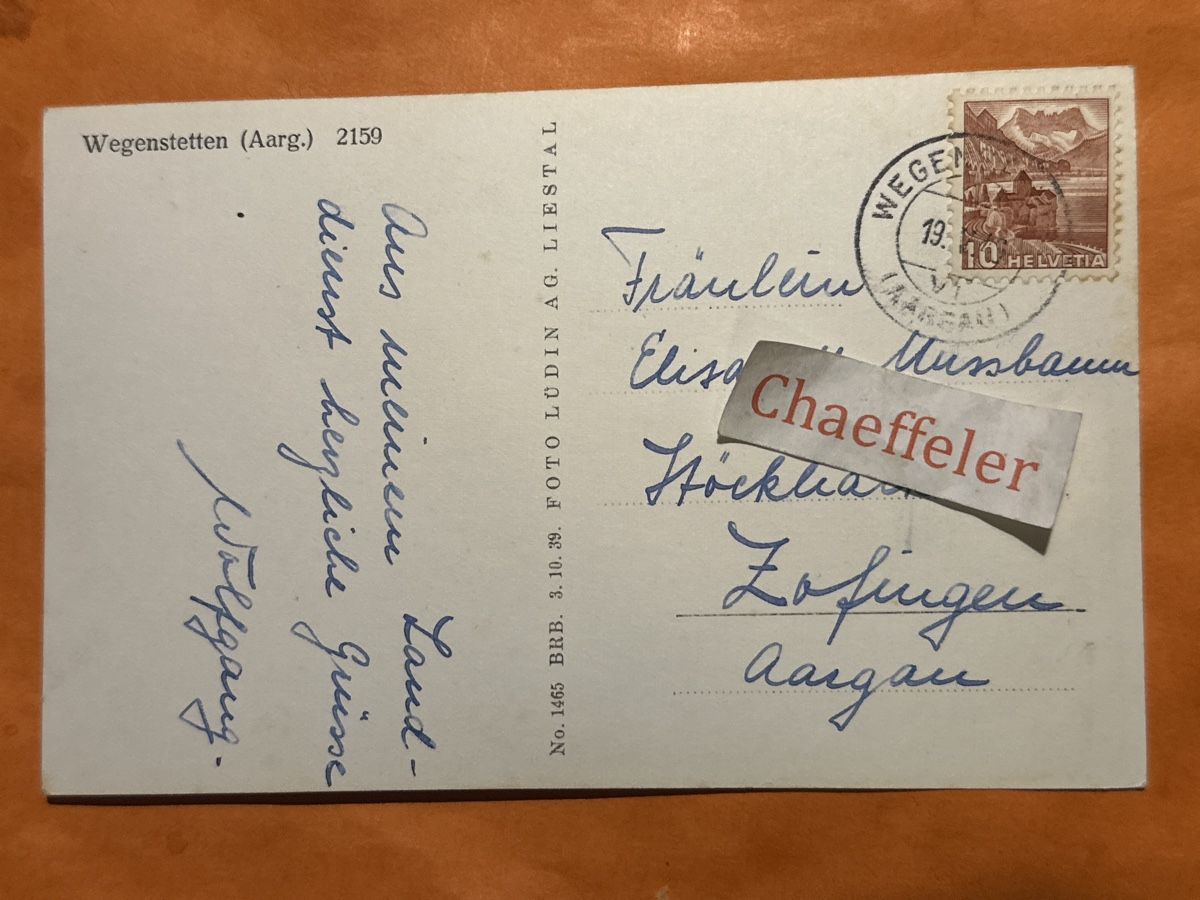 Wegenstetten (Aarg.) 2159
Aus meinem Land-
dienst herzliche Grüsse
Wolfgang.
No. 1465 BRB. 3. 10. 39. FOTO LÜDIN AG. LIESTAL
WEGEN
19.
VI
(AARGAU)
10 HELVETIA
Fräulein
Nussbaum
Chaeffeler
Zofingen
Aargau